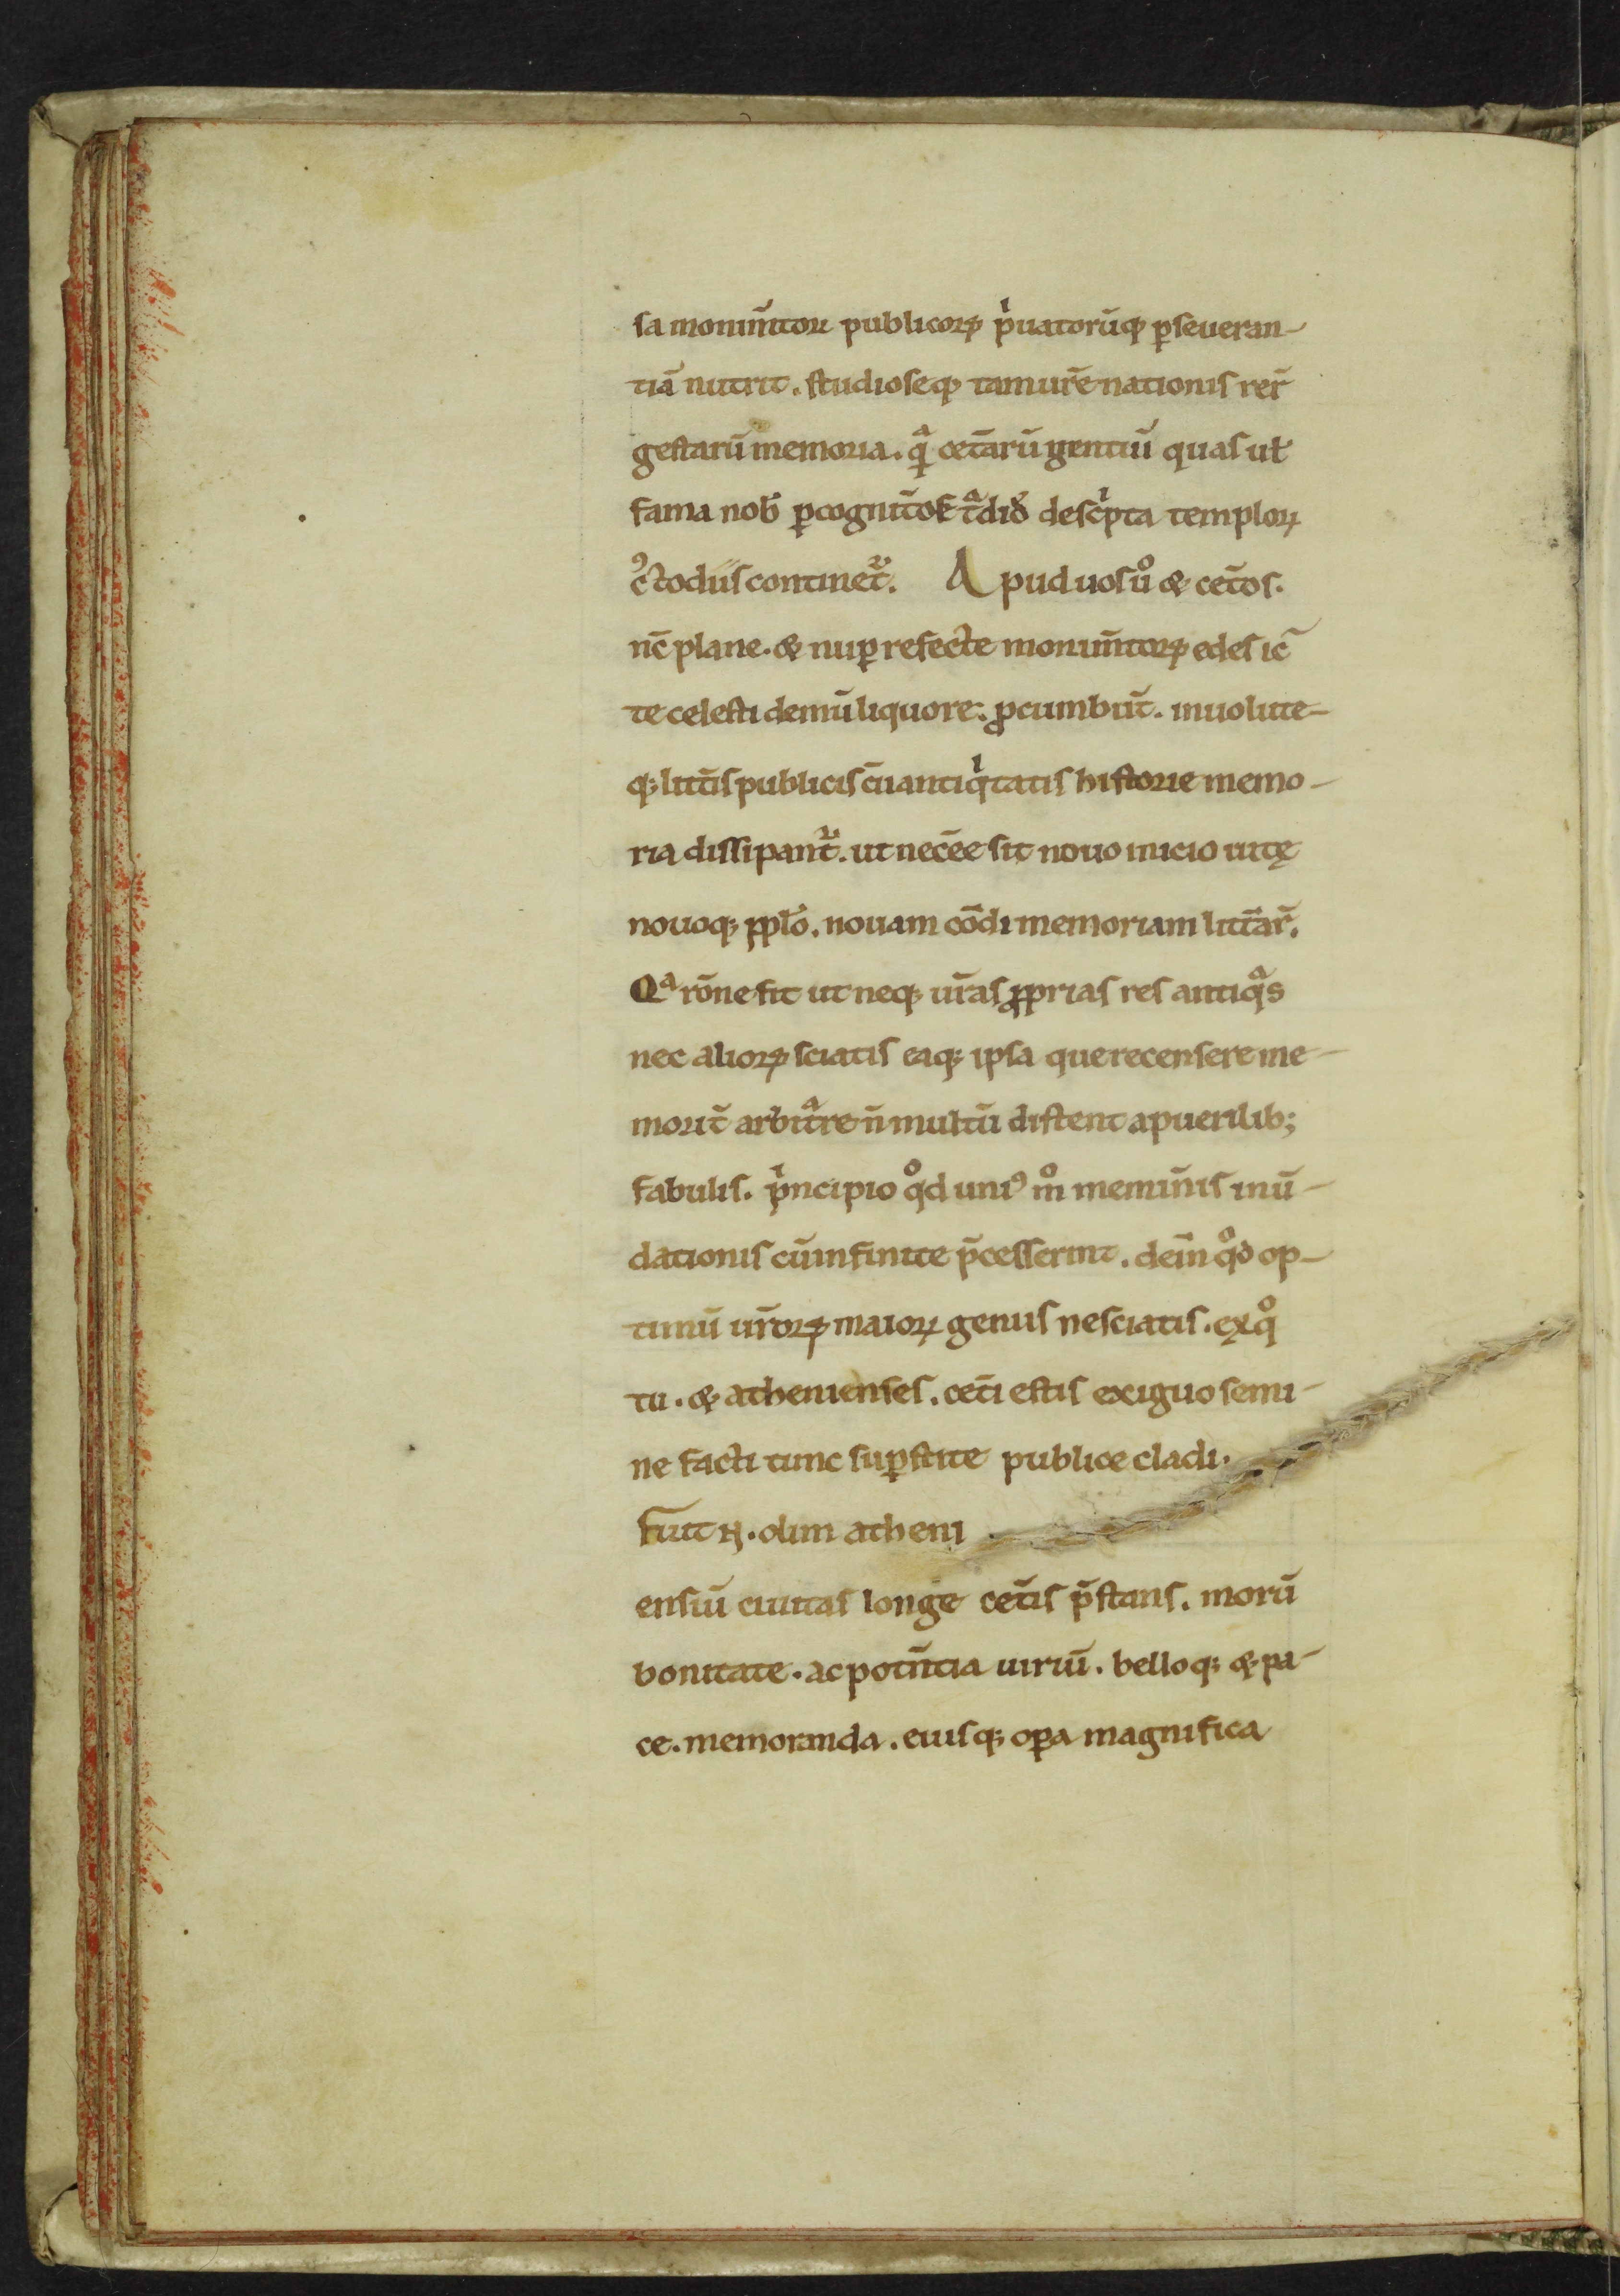 sa monum̅tor̅ publicoꝝ pͥuatorūq; ꝑseueran-
tiā nutrit. studioseq; tam ur̅e nationis rer̅
gestarū memoria. qͣ cet̅arū gentiū quas ut
fama nob̅ ꝑcognit̅ok tͣdid̅ descͥpta temploꝝ
cꝰtodiis continet̅ᷣ. Apud uos uͦ & cet̅os.
nc̅ plane. & nuꝑ refecte monum̅toꝝ edes ic̅
te celesti demū liquore. ꝓcumbūt. inuolute-
q; litt̅is publicis cū antiqͥtatis historie memo-
ria dissipant̅ᷣ. ut nec̅ee sit nouo inicio uitę
nouoq; ppl̅o. nouam co̅di memoriam litt̅ar̅.
Qͣ ro̅ne fit ut neq; ur̅as ꝓprias res antiqͣs
nec alioꝝ sciatis eaq; ipsa que recensere me-
morit̅ arbitͣre n̅ multū distent a puerilib;
fabulis. pͥncipio qͦd uniꝰ mͦ memin̅is inū-
dationis cū infinite p̅cesserint. dein̅ qͦd op-
timū ur̅oꝝ maioꝝ genus nesciatis. ex qͦ
tu. & athenienses. cet̅i estis exiguo semi-
ne facti tunc suꝑstite publice cladi.
Fuit n̅. olim atheni
ensiū ciuitas longe cet̅is p̅stans. morū
bonitate. ac pot̅ntia uiriū. belloq; & pa-
ce. memoranda. eiusq; oꝑa magnifica